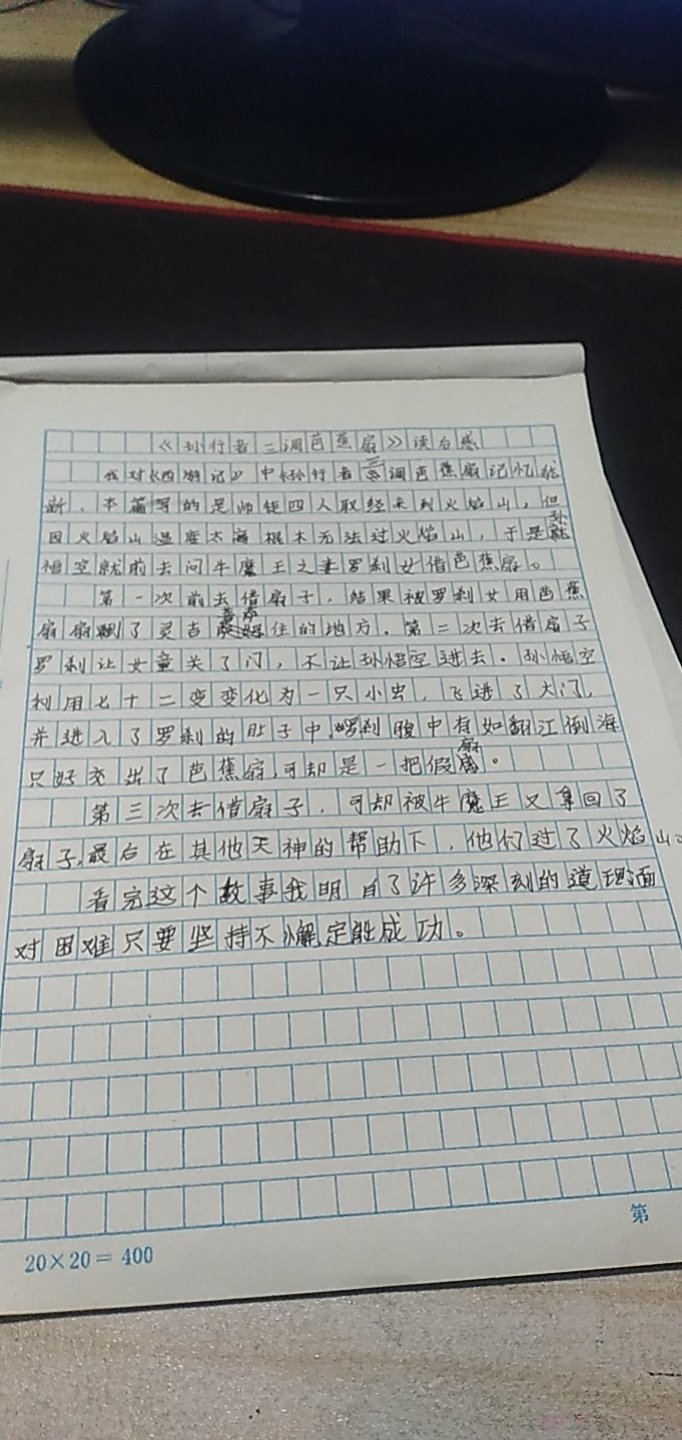 《孙行者三调芭蕉扇》读后感
我对《西游记》中《孙行者三调芭蕉扇记忆犹
新．本篇写的是师徒四人取经来到火焰山，但
因火焰山温度太高根本无法过火焰山，于是孙
悟空就前去问牛魔王之妻罗刹女借芭蕉扇。
第一次前去借扇子，结果被罗刹女用芭蕉
扇扇飘了灵吉菩萨住的地方．第二次去借扇子
罗刹让女童关了门，不让孙悟空进去．孙悟空
利用七十二变变化为一只小虫，飞进了大门，
并进入了罗刹的肚子中，罗刹腹中有如翻江倒海
只好交出了芭蕉扇，可却是一把假扇。
第三次去借扇子，可却被牛魔王又拿回了
扇子，最后在其他天神的帮助下，他们过了火焰山。
看完这个故事我明白了许多深刻的道理：面
对困难只要坚持不懈定能成功。
20×20＝400
第